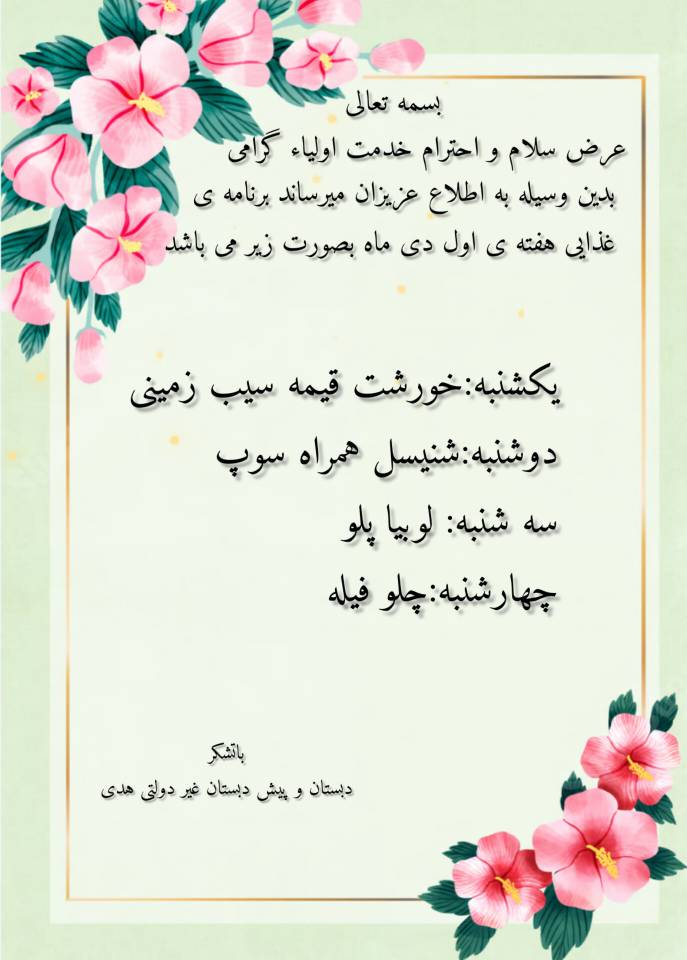 بسمه تعالی
عرض سلام و احترام خدمت اولیاء گرامی
بدین وسیله به اطلاع عزیزان میرساند برنامه ی
غذایی هفته ی اول دی ماه بصورت زیر می باشد
یکشنبه:خورشت قیمه سیب زمینی
دوشنبه:شنیسل همراه سوپ
سه شنبه: لوبیا پلو
چهارشنبه:چلو فیله
باتشکر
دبستان و پیش دبستان غیر دولتی هدی